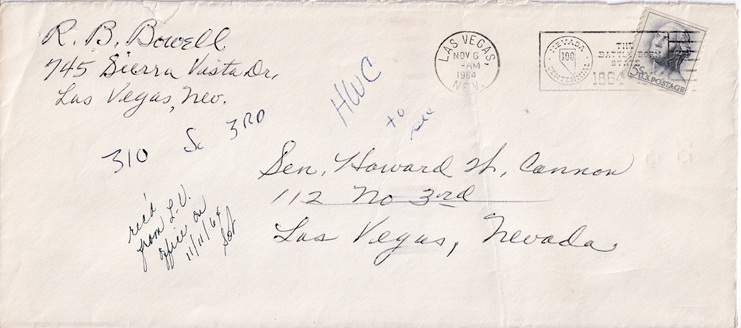 R. B. Bowell
745 Sierra Vista Dr.
Las Vegas, Nev.
LAS VEGAS,
NOV 6
-AM
1964
NEV.
NEVADA
100
CENTENNIAL
THE
BATTLE BORN
STATE
1864
5¢ U.S. POSTAGE
HWC
to
see
310 So 3RD
Sen. Howard W. Cannon
112 No 3rd
Las Vegas, Nevada
rec'd
from L.V.
office on
11/11/64